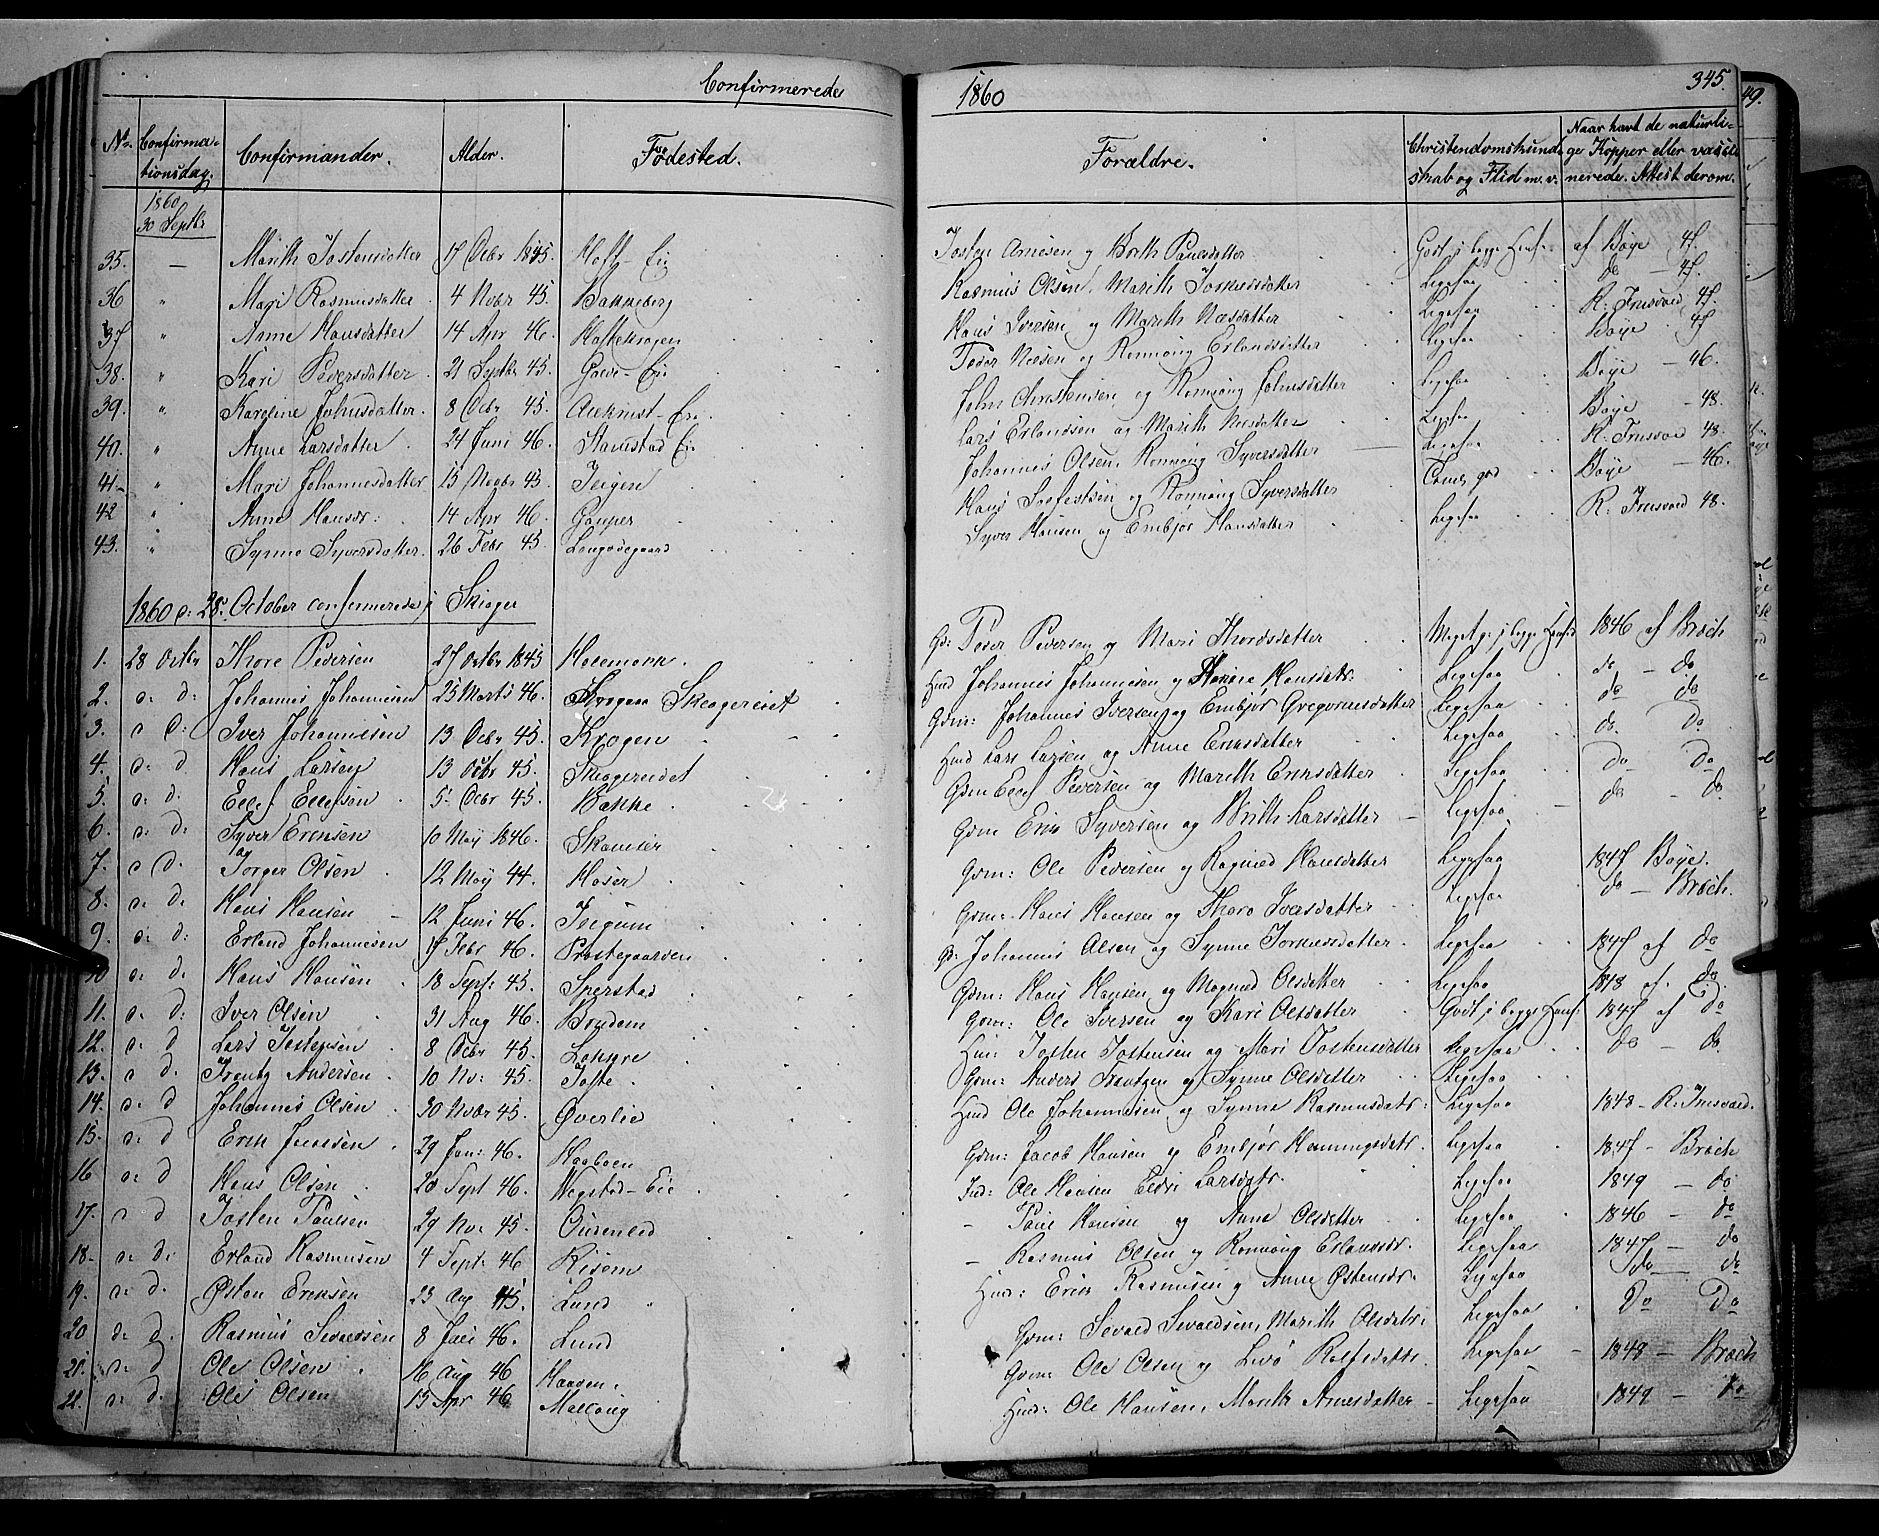 Confirmerede
1860
345.
49.
No. Confirma-tionsdag. Confirmander. Alder. Fødested. Forældre. Christendomskund-skab og Flid m. v. Naar havt de naturli-ge Kopper eller vacci-nerede. Attest derom.
1860
30 Septbr
35. — Marith Jostensdatter 17 Decbr 1845. Hoft-Eie Josten Arnesen og Brith Paulsdatter Godt i begge Hens. af Bøye 47.
36 " Mari Rasmusdatter 4 Novbr 45. Bakkeberg Rasmus Olsen, Marith Jørnusdatter Ligesaa do — 47.
37 " Anne Hansdatter 14 Apr 46. Hans Iversen og Marith Ligesaa R. Frusvold 47.
38. " Kari Pedersdatter 21 Septbr 45. Eie Peder og Ronnoug Erlandsdatter Ligesaa Bøye 47.
39. " Karoline Johnsdatter 8 Decbr 45. Aukrust-Eie John Christensen og Ronnoug Johnsdatter Ligesaa Bøye — 46.
40. " Anne Larsdatter 24 Juni 46. Stamstad Eie Lars Erlandsen og Marith Ligesaa Bøye — 48.
41. " Mari Johannesdatter 15 Novbr 45. Teigen Johannes Olsen, Ronnoug Syversdatter Ligesaa R. Frusvold 48.
42 " Anne Hansdr: 14 Apr 46. Gauper Hans og Ronnoug Syversdatter Temlig god Bøye — 46.
43. " Synne Syversdatter 26 Febr 45. Syver Hansen og Embjør Hansdatter Ligesaa R. Frusvold 48.
1860 d: 28. October confirmerede i Skiager
1. 28 Octbr Thore Pedersen 27 Octbr 1845 Gd: Peder Pedersen og Mari Thordsdatter Meget g. i begge Hens. 1846 af Broch
2. d: d: Johannes Johannesen 25 Marts 46. Hmd Johannes Johannesen og Hansdatr. Ligesaa do — do
3. d D: Iver Johannesen 13 Decbr 45. Krogen Gdm: Johannes Iversen og Embjør Gregoriusdatter Ligesaa do do
4. d: d. Hans Larsen 13 Octbr 45. Skiagereidet Hmd Lars Larsen og Anne Eriksdatter Ligesaa do Do
5. d: d. Ellef Ellefsen 5 Decbr 45. Bakke Gdm Ellef Pedersen og Marith Eriksdatter Ligesaa Do Do
6. d: d: Syver Eriksen 10 May 1846. Skamsar Gdm Erik Syversen og Brith Larsdatter Ligesaa do — do.
7. d d: Torger Olsen 12 May 44. Hoser Gdm: Ole Pedersen og Ragnild Hansdatter Ligesaa 1847 Bøye.
8. d: d. Hans Hansen 12 Juni 46. Teigum Gdm: Hans Hansen og Thora Iversdatter Ligesaa do — Broch.
9. d: d: Erland Johannesen 17 Febr 46. Præstegaarden Gd: Johannes Olsen og Synne Ligesaa 1847 af do
10 d: d. Hans Hansen 18 Sept: 45. Skerstad Gdm: Hans Hansen og Magnild Olsdatter Ligesaa 1848 af. do.
11. d: d: Iver Olsen 31 Aug 46. Brudem Gdm: Ole Iversen og Kari Olsdatter Godt i begge Hens: 1847 af Do
12. d: d Lars Jostensen 8 Decbr 45. Hm: Josten Jostensen og Mari Jostensdatter Ligesaa do — do.
13. d d. Frantz Andersen 10 Nov: 45. Tofte Gdm: Anders Frantzen og Synne Olsdatter Ligesaa
14. d: d Johannes Olsen 30 Novbr 45. Øverlie Hmd Ole Johannesen og Synne Rasmusdatr: Ligesaa 1848 — R: Frusvold.
15. d: d Erik Jacobsen 29 Jan: 46. Haaboen Gdm: Jacob Hansen og Embjør Hemmingsdatr. Ligesaa 1847 — Broch
16 d: d Hans Olsen 20 Sept 46. Wegstad-Eie Ind: Ole Hansen Eldri Larsdatr. Ligesaa 1849 — do
17. d d Josten Paulsen 29 Nov 45. — Paul Hansen og Anne Olsdatter Ligesaa 1846 — do
18. d: d: Erland Rasmusen 4 Sept: 46 Risem — Rasmus Olsen og Ronnoug Erlandsdr. Ligesaa 1847 — do
19. d: d. Østen Eriksen 23 Aug 45. Lund Hmd: Erik Rasmusen og Anne Østensdr. Ligesaa do — do
20 d: d. Rasmus Sivaldsen 8 Juli 46. Lund Gdm: Sivald Sivaldsen, Marith Olsdatr: Ligesaa Do Do
21. d: d Ole Olsen 16 Aug 46 Haaven. Gdm: Ole Olsen og Livø Rolfsdatr. Ligesaa — 1848 — Broch
22. d: d. Ole Olsen 13 Apr 46 Hmd: Ole Hansen, Marith Arnesdatter — Ligesaa 1849 — do